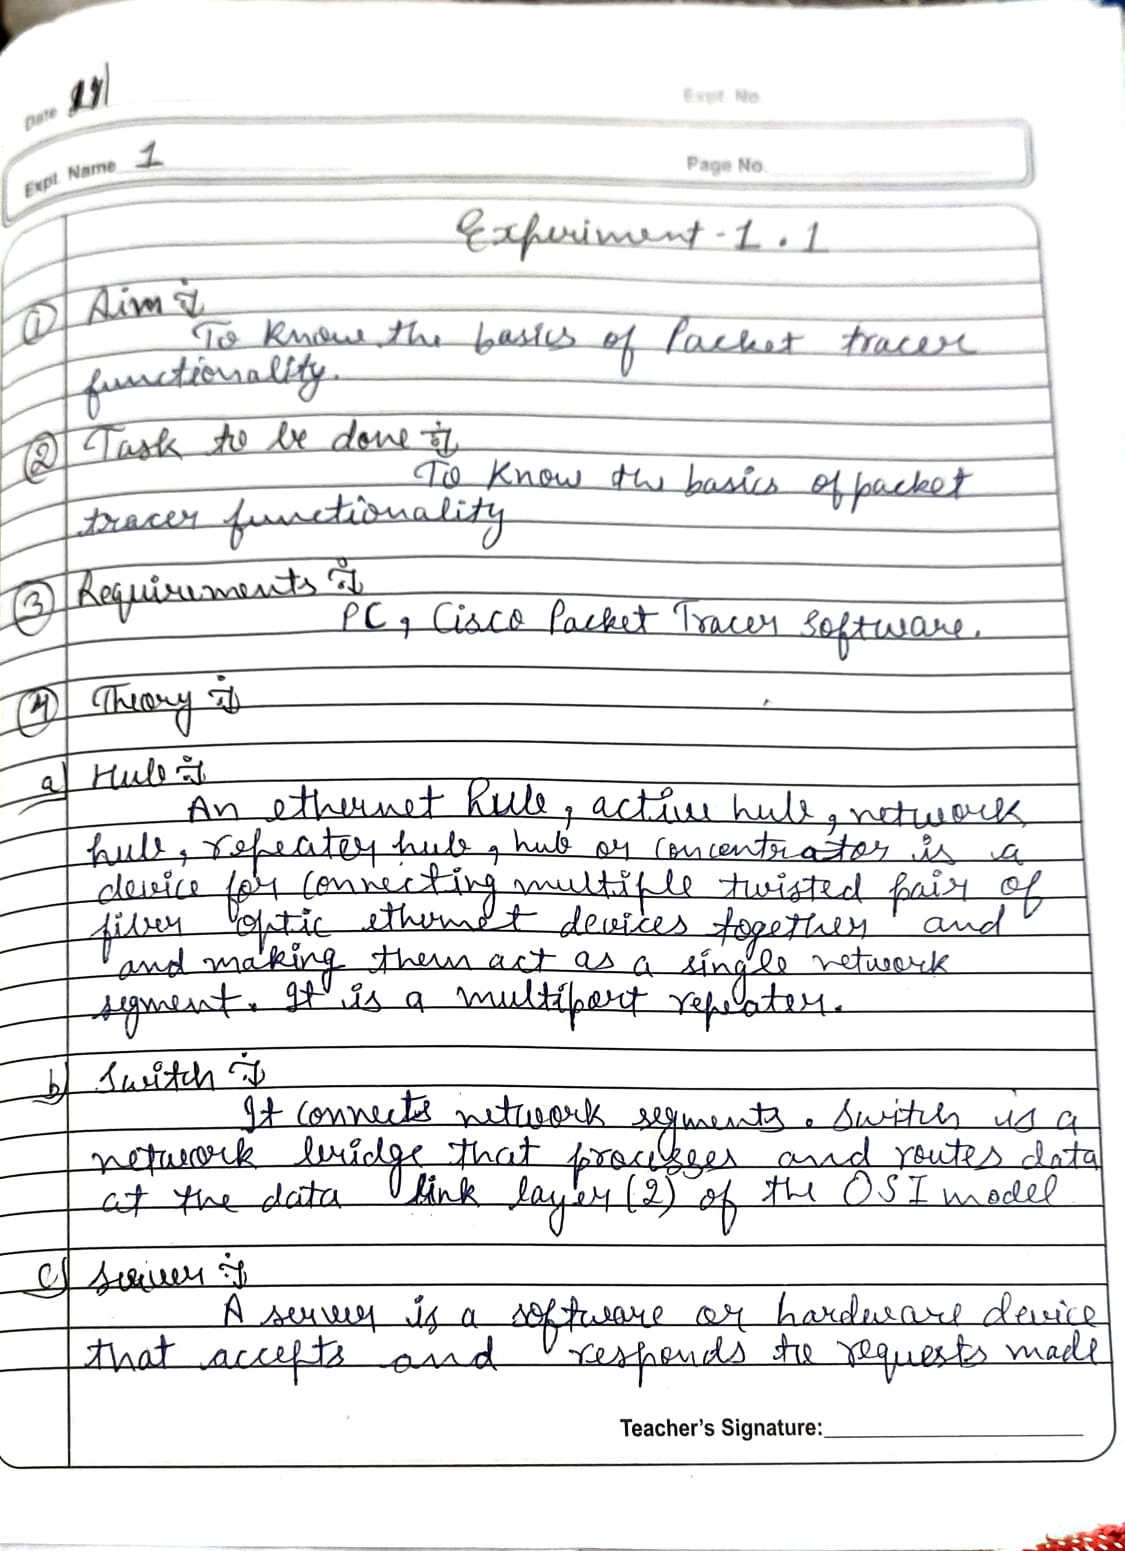 Date
Expt. No.
Expt. Name 1
Page No.
Experiment-1.1
① Aim :-
To know the basics of Packet tracer
functionality.
② Task to be done :-
To Know the basics of packet
tracer functionality
③ Requirements :-
PC, Cisco Packet Tracer Software.
④ Theory :-
a) Hub :-
An ethernet hub, active hub, network
hub, repeater hub, hub or concentrator is a
device for connecting multiple twisted pair of
fiber optic ethernet devices together and
and making them act as a single network
segment. It is a multiport repeater.
b) Switch :-
It connects network segments. Switch is a
network bridge that processes and routes data
at the data link layer (2) of the OSI model
c) Server :-
A server is a software or hardware device
that accepts and responds the requests made
Teacher's Signature: